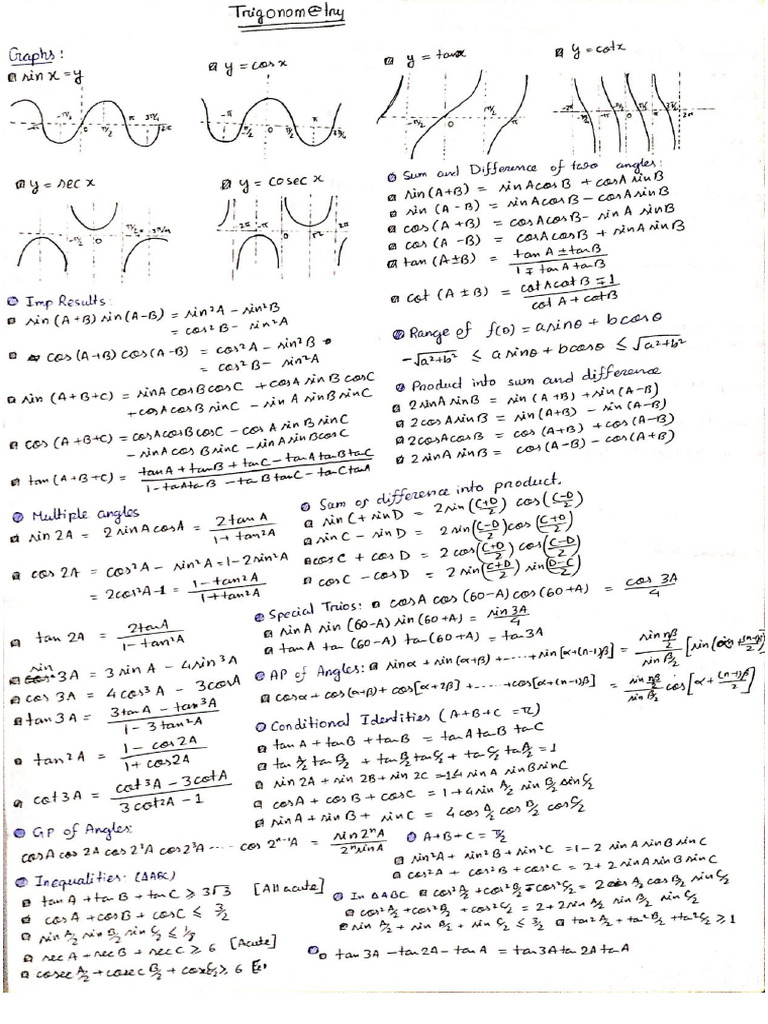 Trigonometry
Graphs:
sin x = y
y = cos x
y = tanx
y = cotx
y = sec x
y = cosec x
Sum and Difference of two angles:
sin(A+B) = sinAcosB + cosA sinB
sin (A-B) = sinAcosB - cosAsinB
cos (A+B) = cosAcosB - sinA sinB
cos (A-B) = cosAcosB + sinAsinB
tan (A±B) = tanA ± tanB / 1∓tanAtanB
cot (A±B) = cotAcotB∓1 / cotA+cotB
Imp Results:
sin(A+B) sin(A-B) = sin²A - sin²B
= cos²B - sin²A
cos(A+B) cos(A-B) = cos²A - sin²B
= cos²B - sin²A
sin (A+B+C) = sinA cosBcosC + cosA sinB cosC
+ cosAcosB sinC - sinA sinBsinC
cos (A+B+C) = cosAcosBcosC - cosA sinB sinC
- sinAcosB sinC - sinA sinBcosC
tan(A+B+C) = tanA+tanB+tanC - tanAtanBtanC / 1-tanAtanB - tanBtanC - tanCtanA
Range of f(θ) = asinθ + bcosθ
-√a²+b² ≤ asinθ + bcosθ ≤ √a²+b²
Product into sum and difference
2sinAsinB = sin(A+B) + sin(A-B)
2cosAsinB = sin(A+B) - sin(A-B)
2cosAcosB = cos(A+B) + cos(A-B)
2sinA sinB = cos(A-B) - cos(A+B)
Multiple angles
sin2A = 2sinAcosA = 2tanA / 1+tan²A
cos2A = cos²A - sin²A = 1-2sin²A
= 2cos²A-1 = 1-tan²A / 1+tan²A
tan2A = 2tanA / 1-tan²A
sin 3A = 3sinA - 4sin³A
cos 3A = 4cos³A - 3cosA
tan3A = 3tanA - tan³A / 1-3tan²A
tan²A = 1-cos2A / 1+cos2A
cot3A = cot³A - 3cotA / 3cot²A-1
Sum or difference into product.
sinC + sinD = 2sin(C+D/2) cos(C-D/2)
sinC - sinD = 2sin(C-D/2)cos(C+D/2)
cosC + cosD = 2cos(C+D/2) cos(C-D/2)
cosC - cosD = 2sin(C+D/2) sin(D-C/2)
Special Trios: cosA cos(60-A)cos(60+A) = cos 3A / 4
sinA sin(60-A)sin(60+A) = sin3A / 4
tanA tan(60-A) tan(60+A) = tan3A
AP of Angles: sinα + sin(α+β) + ...... + sin[α+(n-1)β] = sin nβ/2 / sin β/2 [sin(α+(n-1)β/2)]
cosα + cos(α+β) + cos[α+2β] + ...... + cos[α+(n-1)β] = sin nβ/2 / sin β/2 cos[α+(n-1)β/2]
Conditional Identities (A+B+C = π)
tanA + tanB + tanB = tanAtanBtanC
tan A/2 tan B/2 + tan B/2 tan C/2 + tan C/2 tan A/2 = 1
sin2A + sin2B + sin2C = 4sinA sinBsinC
cosA + cosB + cosC = 1+4sin A/2 sin B/2 sin C/2
sinA + sinB + sinC = 4cos A/2 cos B/2 cos C/2
GP of Angles:
cosA cos2A cos2²A cos2³A ..... cos2ⁿ⁻¹A = sin2ⁿA / 2ⁿsinA
A+B+C = π/2
sin²A + sin²B + sin²C = 1-2 sinAsinBsinC
cos²A + cos²B + cos²C = 2+2sinAsinBsinC
Inequalities: (ΔABC)
tanA + tanB + tanC ≥ 3√3 [All acute]
cosA + cosB + cosC ≤ 3/2
sin A/2 sin B/2 sin C/2 ≤ 1/8
secA + secB + secC ≥ 6 [Acute]
cosec A/2 + cosec B/2 + cosec C/2 ≥ 6
In ΔABC cos² A/2 + cos² B/2 - cos² C/2 = 2cos A/2 cos B/2 sin C/2
cos² A/2 + cos² B/2 + cos² C/2 = 2+2sin A/2 sin B/2 sin C/2
sin A/2 + sin B/2 + sin C/2 ≤ 3/2 tan² A/2 + tan² B/2 + tan² C/2 ≥ 1
tan3A - tan2A - tanA = tan3Atan2AtanA